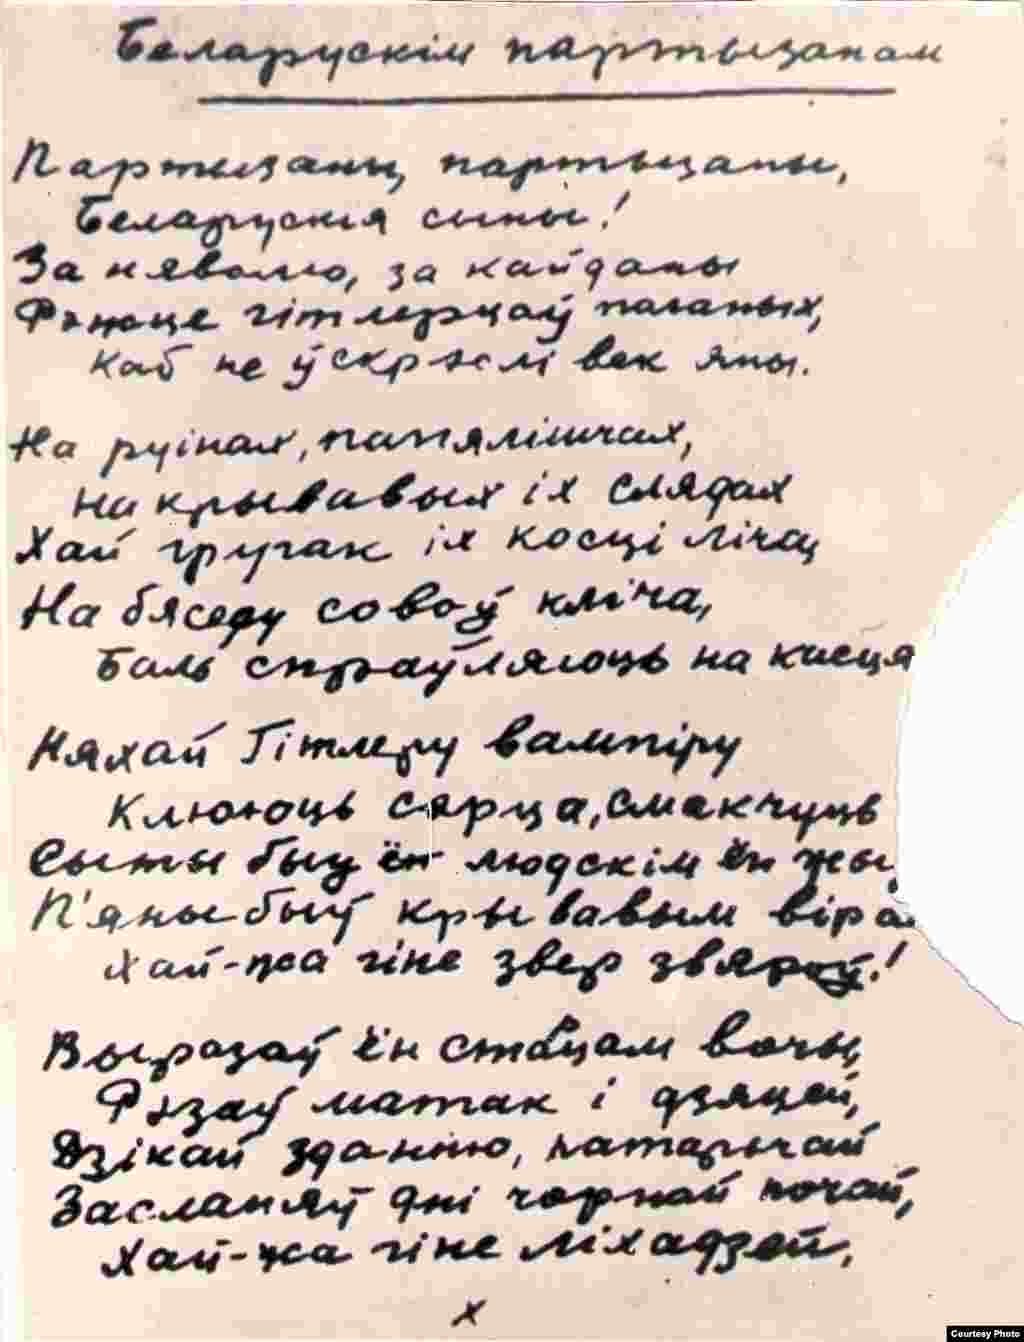 Беларускім партызанам
Партызаны, партызаны,
Беларускія сыны!
За няволю, за кайданы
Рэжце гітлерцаў паганых,
Каб не ўскрэслі век яны.
На руінах, папялішчах,
На крывавых іх слядах
Хай груган іх косці лічац
На бяседу соваў кліча,
Баль спраўляюць на касця
Няхай Гітлеру вампіру
Клююць сэрца, смакчуць
Сыты быў ён людскім ён жы
П'яны быў крывавым віра
Хай-жа гіне звер звяроў!
Выразаў ён старцам вочы,
Рэзаў матак і дзяцей,
Дзікай зданню, патарочай
Засланяў дні чорнай ночай,
Хай-жа гіне ліхадзей.
х
Courtesy Photo